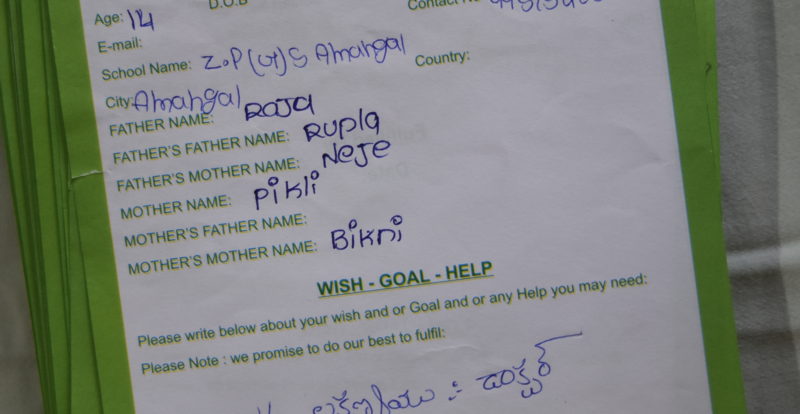 D.O.B
Age: 14
Contact No
E-mail:
School Name: Z.P(u)S Amangal Country:
City: Amangal
FATHER NAME: ROJA
FATHER'S FATHER NAME: Rupla
FATHER'S MOTHER NAME: NeJe
MOTHER NAME: Pikli
MOTHER'S FATHER NAME:
MOTHER'S MOTHER NAME: Bikni
WISH - GOAL - HELP
Please write below about your wish and or Goal and or any Help you may need:
Please Note : we promise to do our best to fulfil:
డాక్టర్